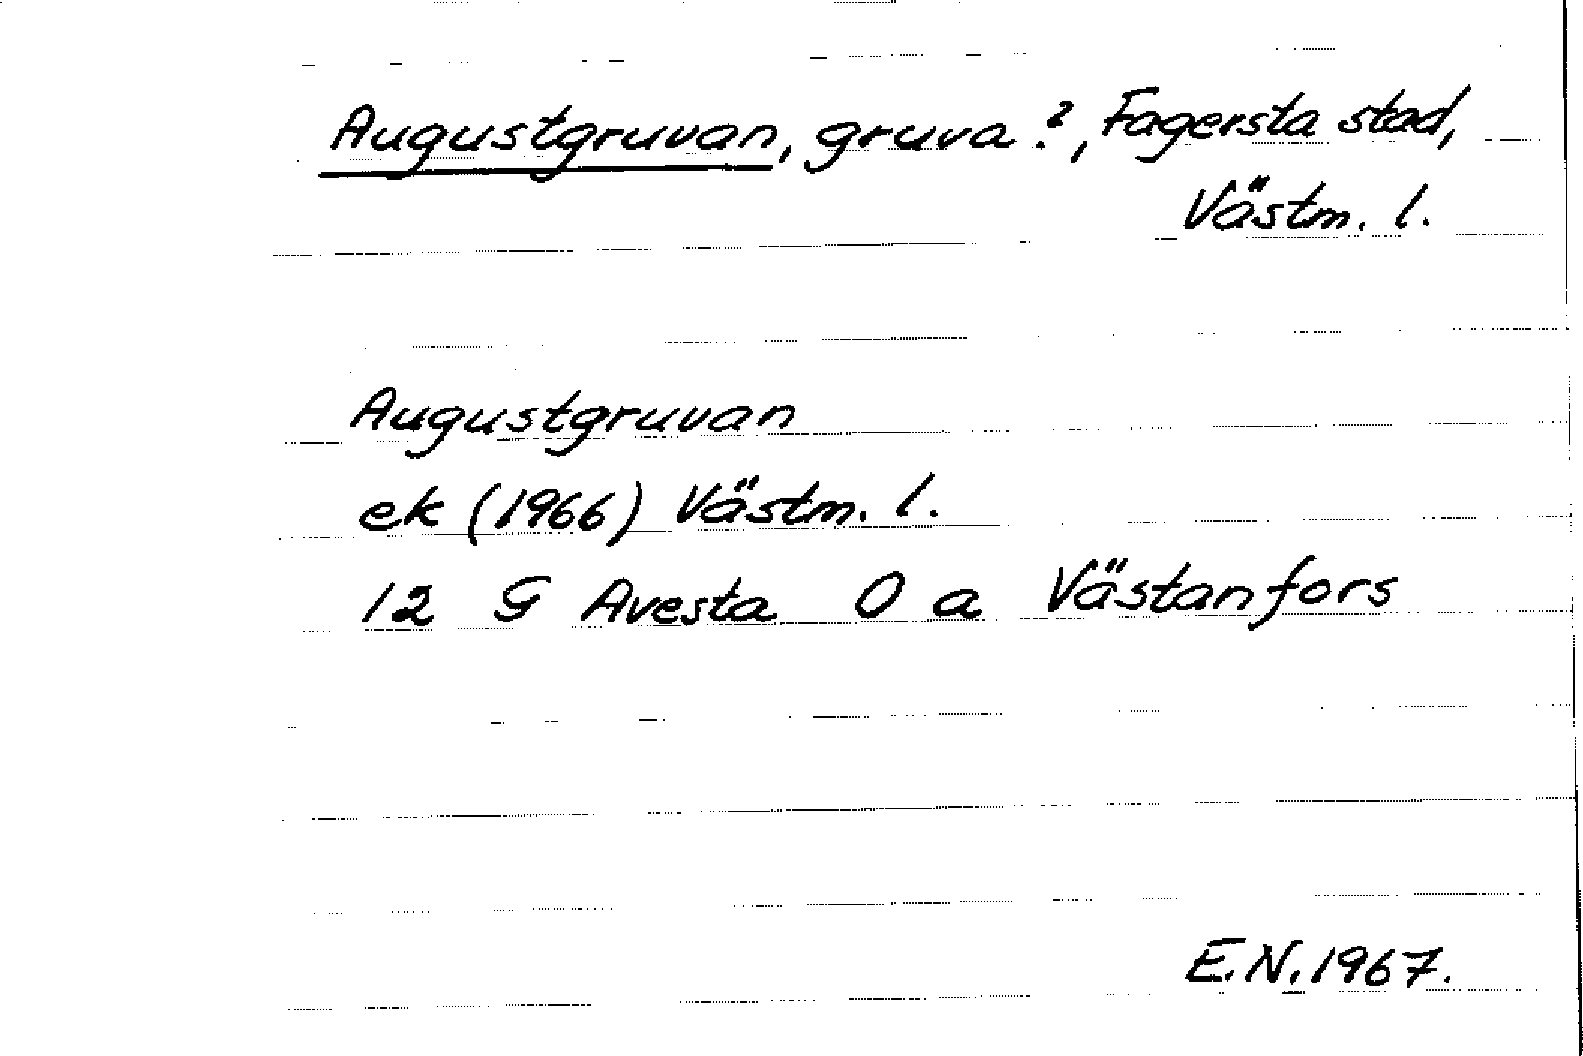 Augustgruvan, gruva?, Fagersta stad,
Västm. l.
Augustgruvan
ek (1966) Västm. l.
12 G Avesta O a Västanfors
E.N. 1967.